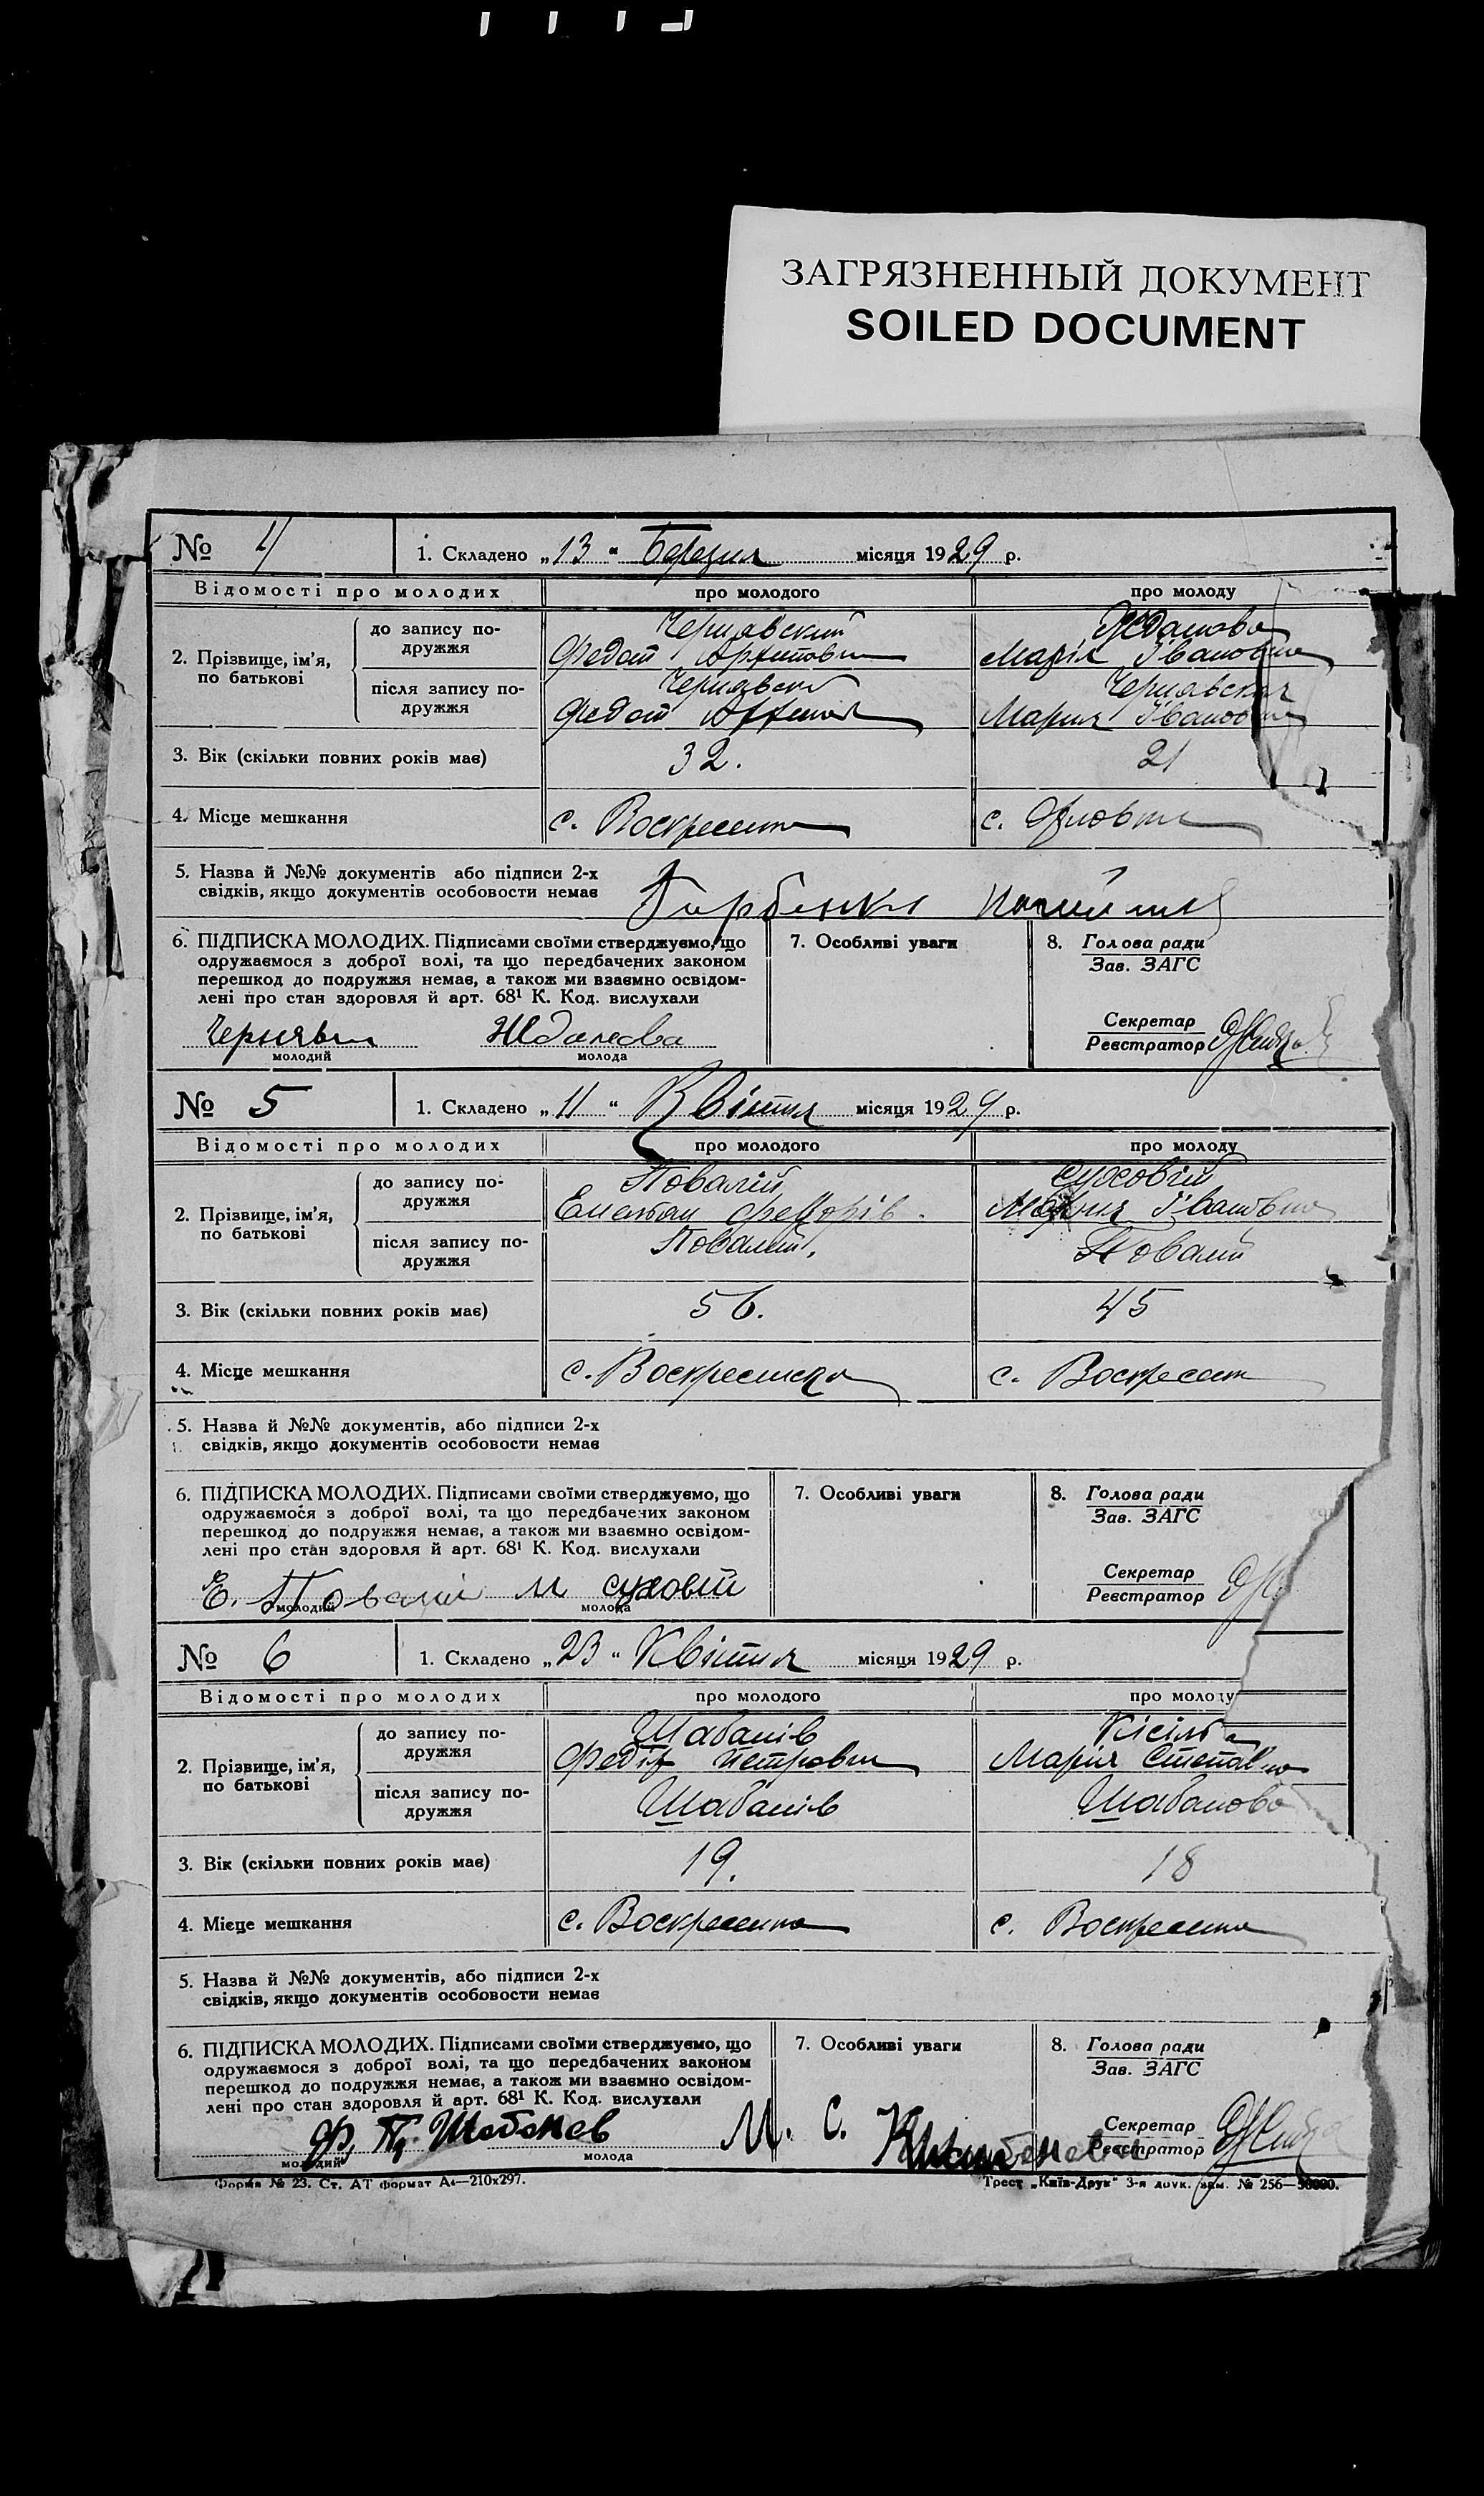 ЗАГРЯЗНЕННЫЙ ДОКУМЕНТ
SOILED DOCUMENT
№ 4
1. Складено „13“ Березня місяця 1929 р.
Відомості про молодих
про молодого
про молоду
2. Прізвище, ім’я, по батькові
до запису подружжя
Чернявский
Федот
Жданова
Марія Івановна
після запису подружжя
Федот
Чернявская
Мария Івановна
3. Вік (скільки повних років має)
32.
21
4. Місце мешкання
с. Воскресенка
с.
5. Назва й №№ документів або підписи 2-х
свідків, якщо документів особовости немає
6. ПІДПИСКА МОЛОДИХ. Підписами своїми стверджуємо, що
одружаємося з доброї волі, та що передбачених законом
перешкод до подружжя немає, а також ми взаємно освідом-
лені про стан здоровля й арт. 68¹ К. Код. вислухали
Жданова
молодий
молода
7. Особливі уваги
8. Голова ради
Зав. ЗАГС
Секретар
Реєстратор
№ 5
1. Складено „11“ Квітня місяця 1929 р.
Відомості про молодих
про молодого
про молоду
2. Прізвище, ім’я, по батькові
до запису подружжя
Повалій
Суховій
Івановна
після запису подружжя
Повалій.
Повалій
3. Вік (скільки повних років має)
56.
45
4. Місце мешкання
с. Воскресенка
с. Воскресенк
5. Назва й №№ документів, або підписи 2-х
свідків, якщо документів особовости немає
6. ПІДПИСКА МОЛОДИХ. Підписами своїми стверджуємо, що
одружаємося з доброї волі, та що передбачених законом
перешкод до подружжя немає, а також ми взаємно освідом-
лені про стан здоровля й арт. 68¹ К. Код. вислухали
Е. Повалій М Суховій
молодий
молода
7. Особливі уваги
8. Голова ради
Зав. ЗАГС
Секретар
Реєстратор
№ 6
1. Складено „23“ Квітня місяця 1929 р.
Відомості про молодих
про молодого
про молоду
2. Прізвище, ім’я, по батькові
до запису подружжя
Шабанів
Федір Петрович
Мария
після запису подружжя
Шабанів
Шабанова
3. Вік (скільки повних років має)
19.
18
4. Місце мешкання
с. Воскресенка
с. Воскресенка
5. Назва й №№ документів, або підписи 2-х
свідків, якщо документів особовости немає
6. ПІДПИСКА МОЛОДИХ. Підписами своїми стверджуємо, що
одружаємося з доброї волі, та що передбачених законом
перешкод до подружжя немає, а також ми взаємно освідом-
лені про стан здоровля й арт. 68¹ К. Код. вислухали
Ф. П. Шабанов
М. С.
молодий
молода
7. Особливі уваги
8. Голова ради
Зав. ЗАГС
Секретар
Реєстратор
Форма № 23. Ст. АТ формат А4—210х297.
Трест „Київ-Друк“ 3-я друк. зам. № 256—50000.